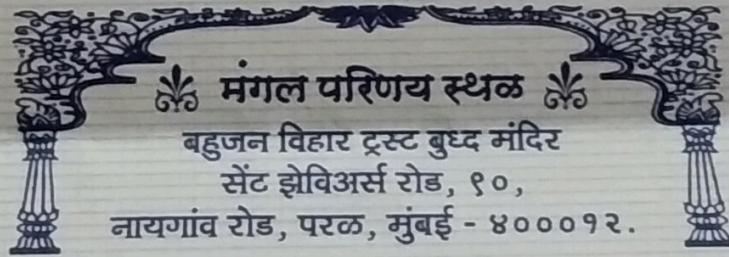 मंगल परिणय स्थळ
बहुजन विहार ट्रस्ट बुध्द मंदिर
सेंट झेविअर्स रोड, ९०,
नायगांव रोड, परळ, मुंबई - ४०००१२.